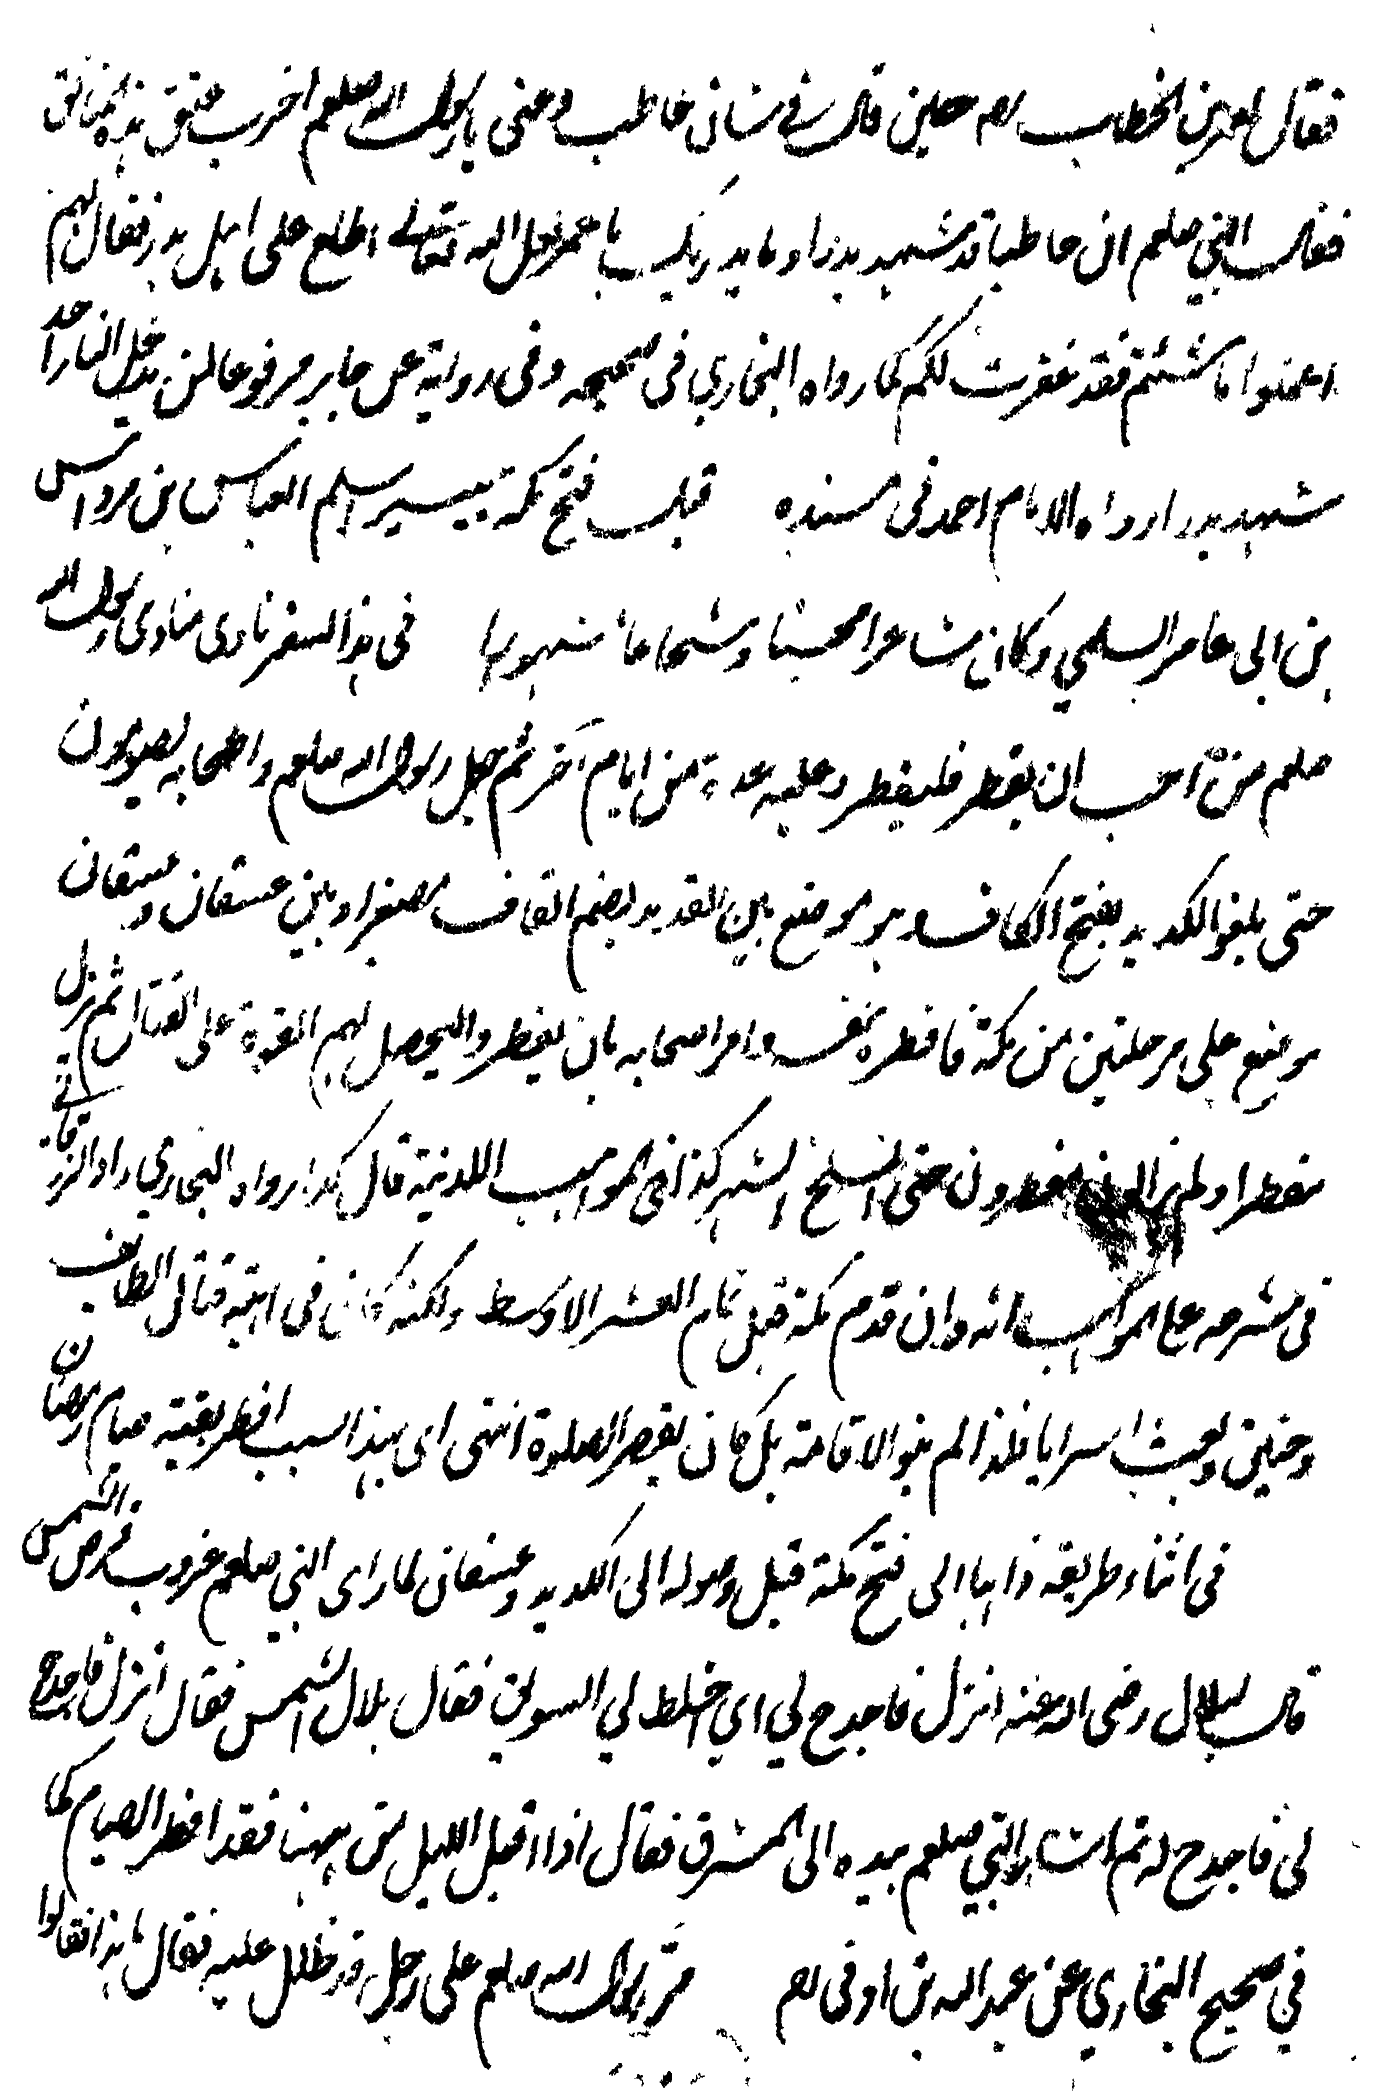 فقال لعمر بن الخطاب رضه حين قال في شان حاطب دعني يا رسول الله صلعم اضرب عنق هذا المنافق
فقال النبي صلعم ان حاطبا قد شهد بدرا وما يدريك يا عمر لعل الله تعالى اطلع على اهل بدر فقال لهم
اعملوا ما شئتم فقد غفرت لكم كما رواه البخاري في صحيحه وفي رواية عن جابر مرفوعا لن يدخل النار احد
شهد بدرا رواه الامام احمد في مسنده قبل فتح مكة بيسير اسلم العباس بن مرداس
بن ابي عامر السلمي وكان شاعرا محسنا وشجاعا مشهورا في هذا السفر نادى منادي رسول الله
صلعم من احب ان يفطر فليفطر وعليه عدة من ايام أخر ثم جعل رسول الله صلعم واصحابه يصومون
حتى بلغوا الكديد بفتح الكاف وهو موضع بين القديد بضم القاف مصغرا وبين عسفان وعسفان
موضع على مرحلتين من مكة فافطر بنفسه وامر اصحابه بان يفطروا ليحصل لهم القوة على القتال ثم نزل
مفطرا ولم يزالوا مفطرون حتى انسلخ الشهر كذا في المواهب اللدنية قال كذا رواه البخاري زاد الزرقاني
في شرحه على المواهب انه وان قدم مكة قبل تمام العشر الاوسط ولكنه كان في اهبة قتال الطائف
وحنين وبعث السرايا فلذا لم ينو الاقامة بل كان يقصر الصلوة انتهى اي بهذا السبب افطر بقية صيام رمضان
في اثناء طريقه ذاهبا الى فتح مكة قبل وصوله الى الكديد وعسفان لما راى النبي صلعم غروب قرص الشمس
قال لبلال رضى الله عنه انزل فاجدح لي اي اخلط لي السويق فقال بلال الشمس فقال انزل فاجدح
لي فاجدح له ثم اشار النبي صلعم بيده الى المشرق فقال اذا اقبل الليل من ههنا فقد افطر الصيام كما
في صحيح البخاري عن عبد الله بن اوفى رضه مرّ رسول الله صلعم على رجل قد ظلل عليه فقال ما هذا فقالوا